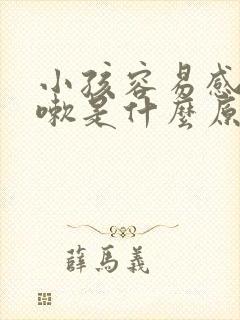 小孩容易感
嗽是什麼原
薛馬義